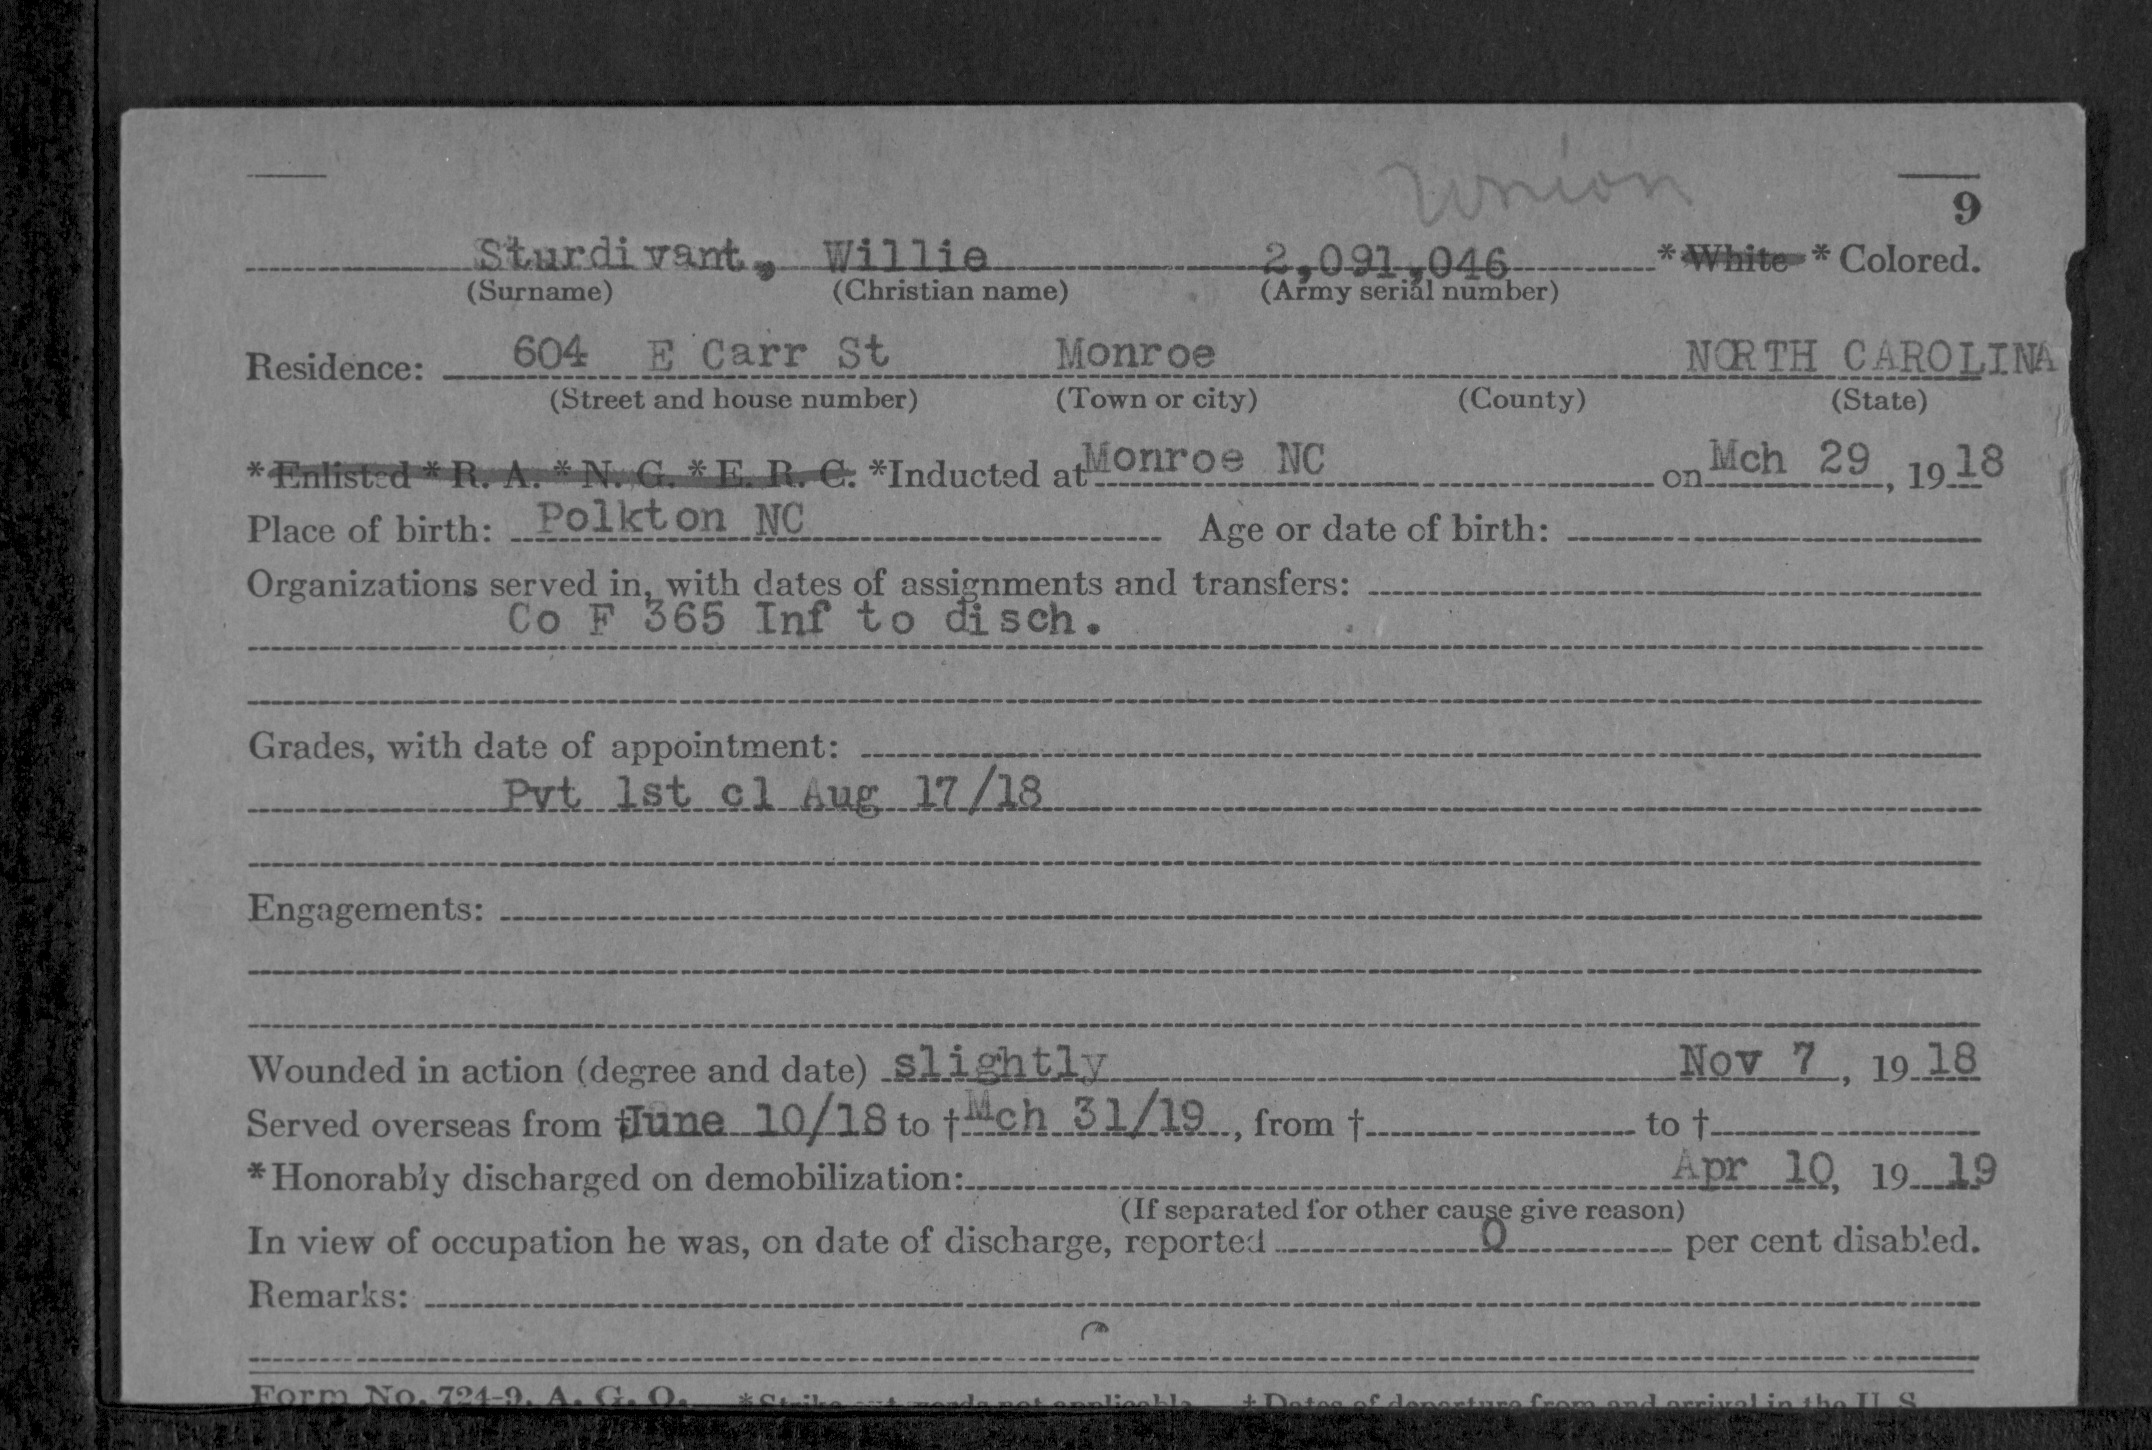 Union
9
Sturdivant, Willie 2,091,046 * White * Colored.
(Surname) (Christian name) (Army serial number)
Residence: 604 E Carr St Monroe NORTH CAROLINA
(Street and house number) (Town or city) (County) (State)
* Enlisted * R. A. * N. G. * E. R. C. *Inducted at Monroe NC on Mch 29, 1918
Place of birth: Polkton NC Age or date of birth:
Organizations served in, with dates of assignments and transfers:
Co F 365 Inf to disch.
Grades, with date of appointment:
Pvt 1st cl Aug 17/18
Engagements:
Wounded in action (degree and date) slightly Nov 7, 1918
Served overseas from † June 10/18 to † Mch 31/19, from † to †
* Honorably discharged on demobilization: Apr 10, 1919
(If separated for other cause give reason)
In view of occupation he was, on date of discharge, reported 0 per cent disabled.
Remarks:
Form No. 724-9, A. G. O. *Strike out words not applicable. † Dates of departure from and arrival in the U. S.